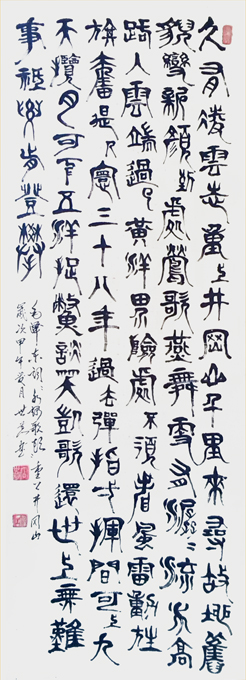 久有凌雲志重上井岡山千里來尋故地舊
貌變新顏到處鶯歌燕舞更有潺潺流水高
路入雲端過了黃洋界險處不須看風雷動旌
旗奮是人寰三十八年過去彈指一揮間可上九
天攬月可下五洋捉鱉談笑凱歌還世上無難
事祗要肯登攀
毛澤東詞水調歌頭重上井岡山
歲次甲午月世